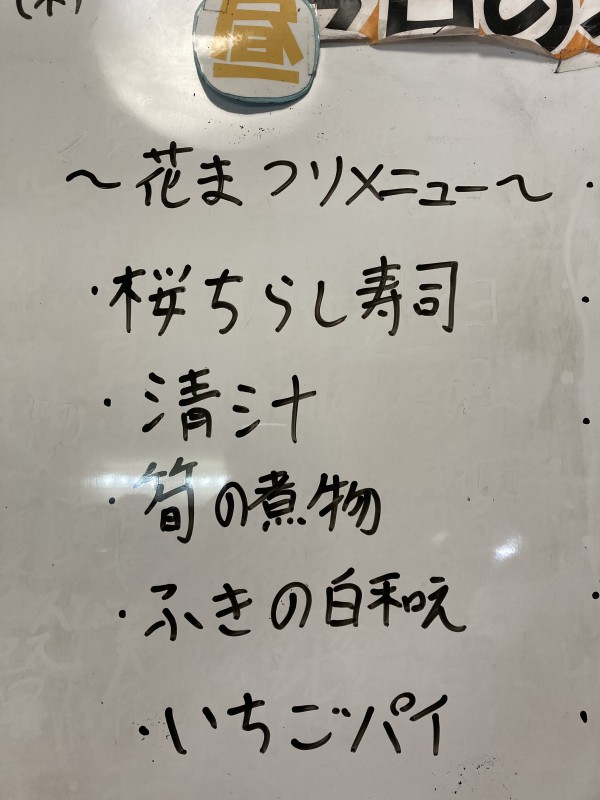 (木)
昼
今日の
～花まつりメニュー～
・桜ちらし寿司
・清汁
・筍の煮物
・ふきの白和え
・いちごパイ